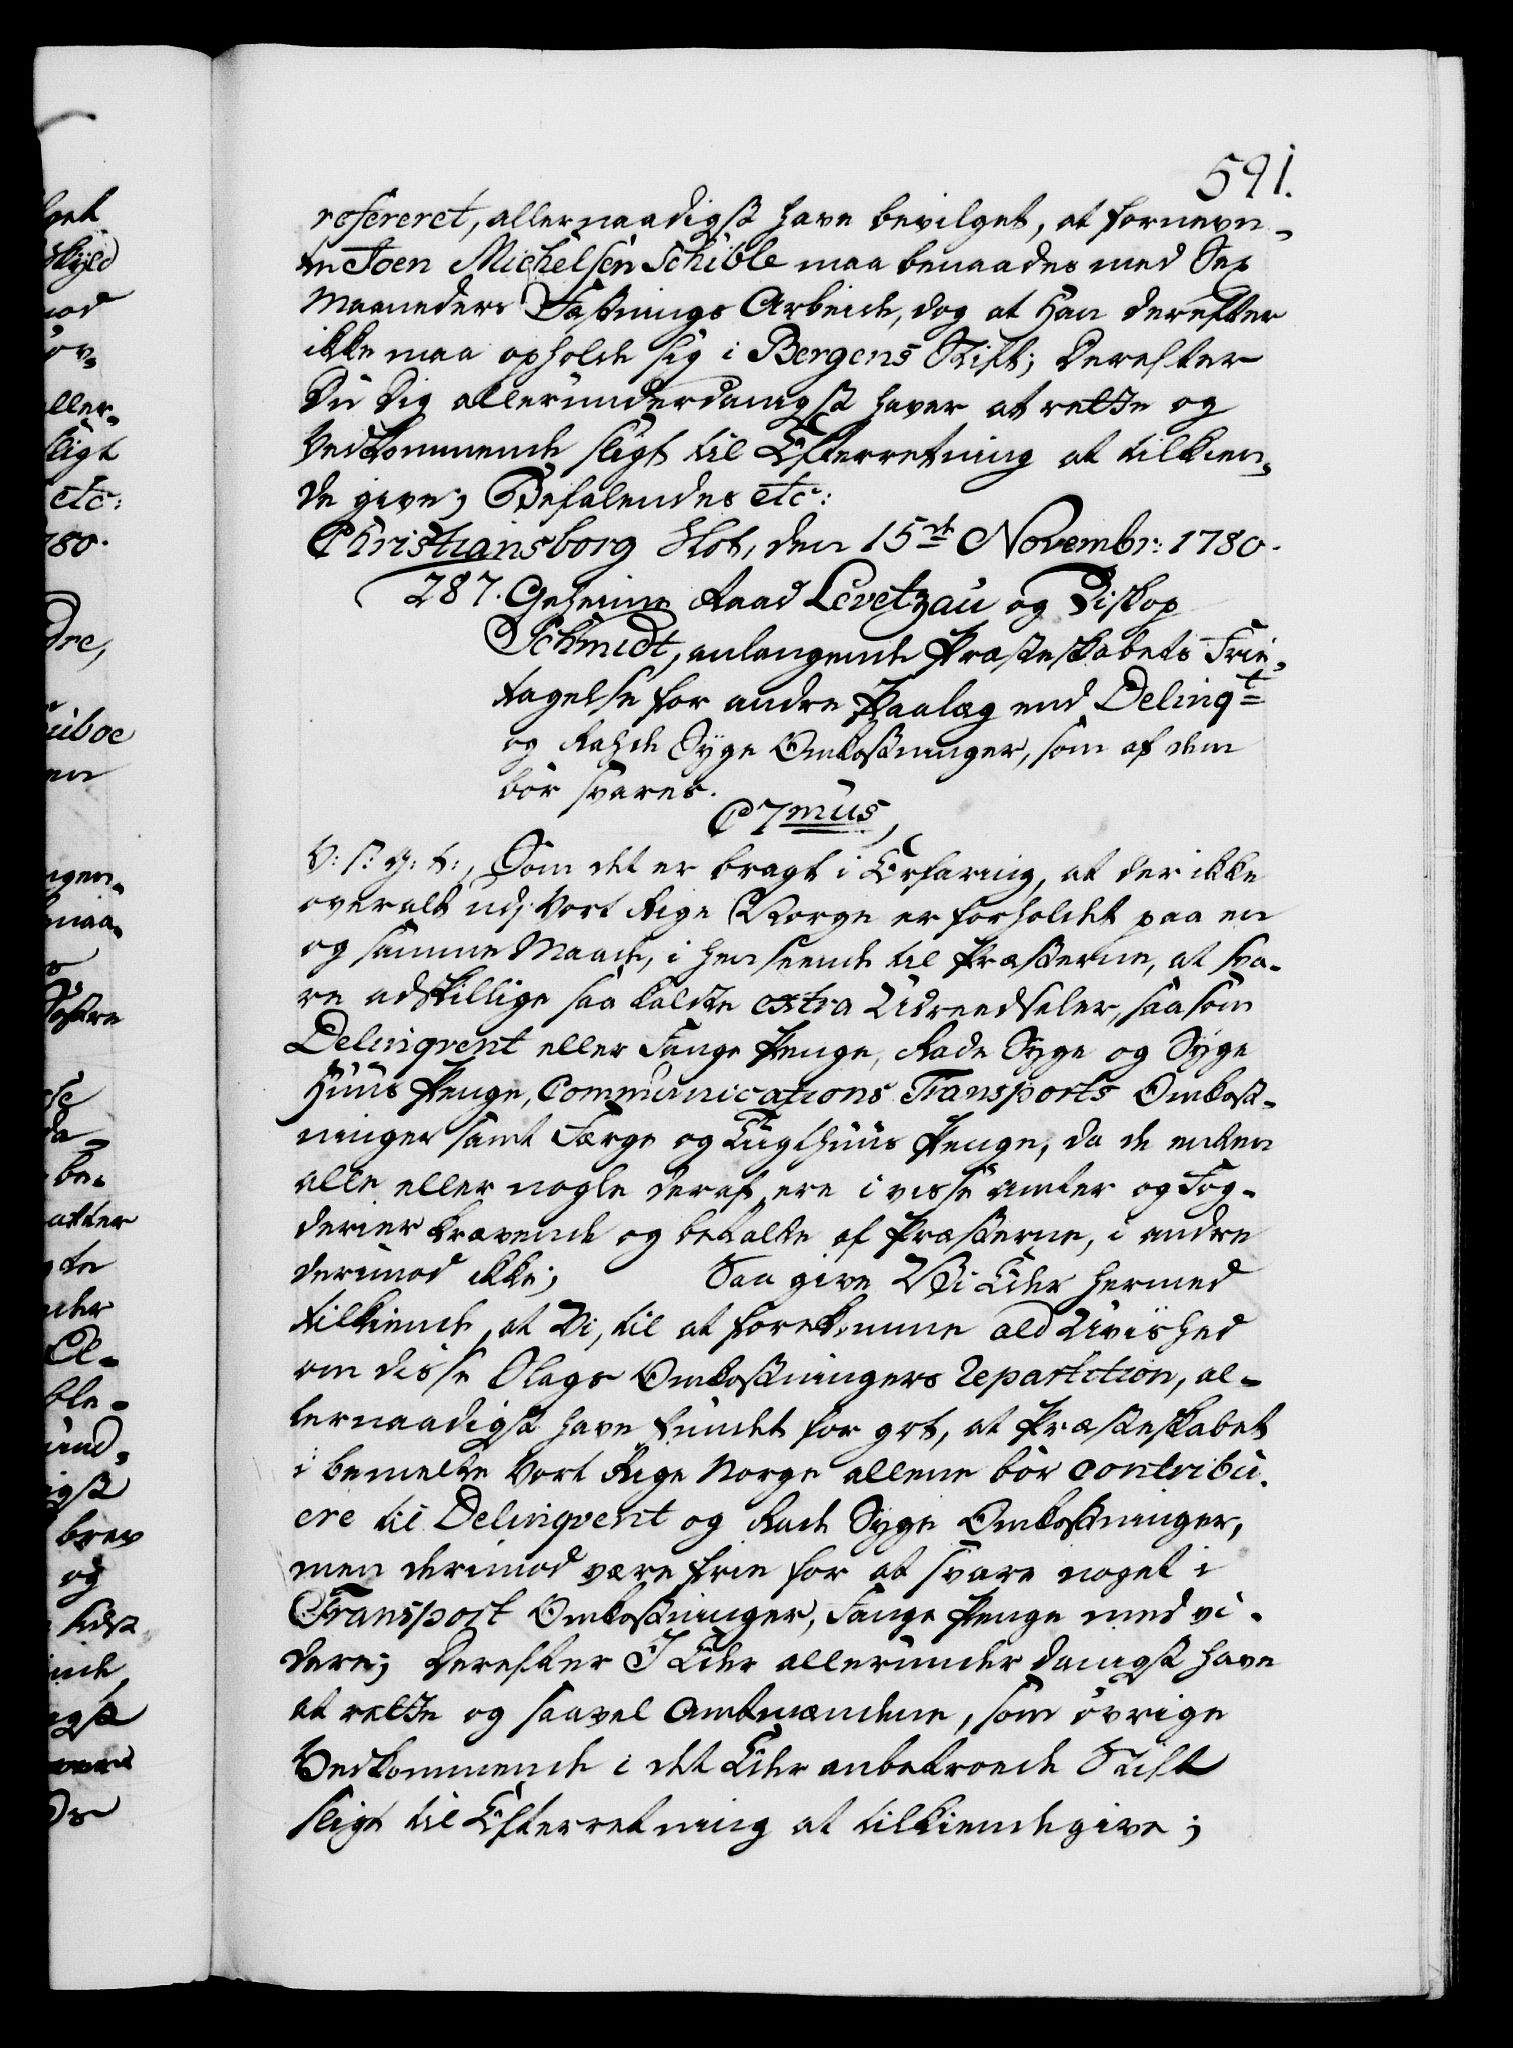 591.
refereret, allernaadigst have bevilget, at fornevn-
te Joen Michelsen Schible maa benaades med Sex
Maaneders Fæstnings Arbeide, dog at Han derefter
ikke maa opholde sig i Bergens Stift; Derefter
Du Dig allerunderdanigst haver at rette og
Vedkommende sligt til Efterretning at tilkien-
de give; Befalendes etc:
Christiansborg Slot, den 15de Novembr: 1780.
287. Geheime Raad Levetzau og Biskop
Schmidt, anlangende Præsteskabets Frie-
tagelse for andre Paalæg end Delinqt
og Radde Syge Omkostninger, som af dem
bör svares.
C 7mus,
V: s: G: t:, Som det er bragt i Erfaring, at der ikke
overalt udj Vort Rige Norge er forholdet paa en
og samme Maade, i henseende til Præsterne, at sva-
re adskillige saa kaldte extra Udreedseler, saasom
Delinqvent eller Fange Penge, Rade Syge og Syge
Huus Penge, Communications Transports Omkost-
ninger samt Færge og Tugthuus Penge, da de enten
alle eller nogle deraf, ere i visse Amter og Fog-
derier krævende og betalte af Præsterne, i andre
derimod ikke; Saa give Vi Eder hermed
tilkiende, at Vi, til at forekomme ald Uvished
om disse Slags Omkostningers repartition, al-
lernaadigst have fundet for got, at Præsteskabet
i bemelte Vort Rige Norge allene bör contribu-
ere til Delinqvent og Rade Syge Omkostninger,
men derimod være frie for at svare noget i
Transport Omkostninger, Fange Penge med vi-
dere; Derefter I Eder allerunderdanigst have
at rette og saavel Amtmændene, som övrige
Vedkommende i det Eder anbetroede Stift
sligt til Efterretning at tilkiendegive;